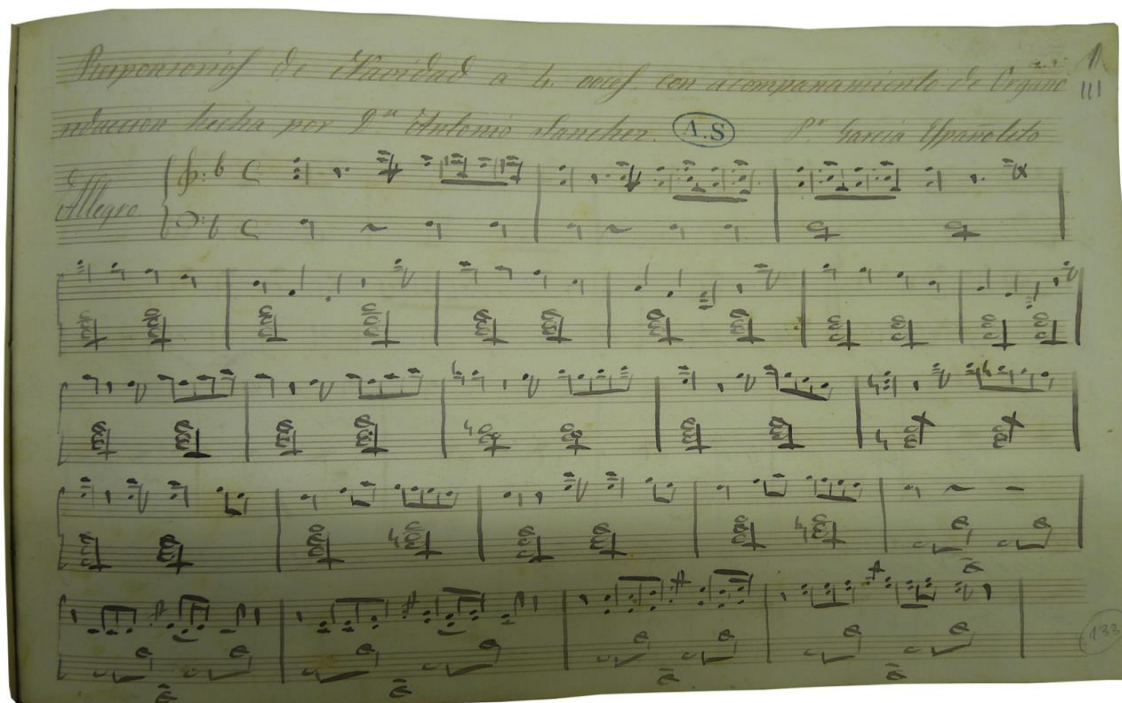 Responsorios de Navidad a 4 voces con acompañamiento de Organo
reduccion hecha por Dn Antonio Sanchez. A.S Pr Garcia Españoleto
1
III
Allegro
133